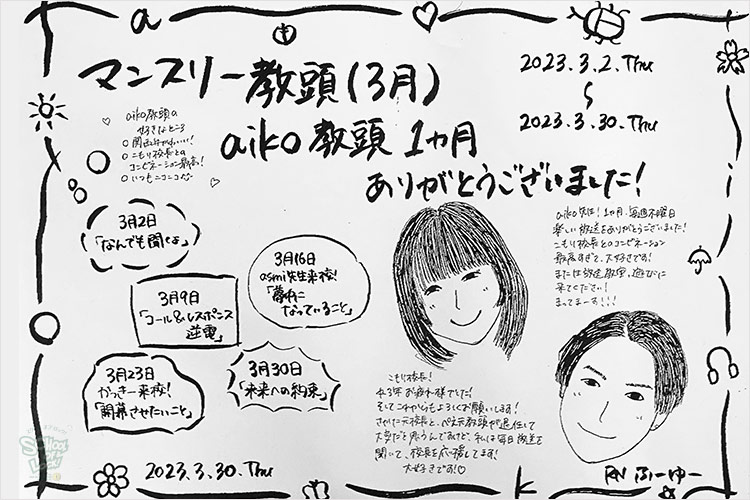 a
マンスリー教頭(3月)
2023.3.2.Thu
〜
2023.3.30.Thu
aiko教頭 1ヵ月
ありがとうございました!
aiko教頭の
好きなところ
○関西弁かわいい!
○こもり校長との
コンビネーション最高!
○いつもニコニコ
3月2日
「なんでも聞くよ」
3月16日
asmi先生来校!
「夢中に
なっていること」
3月9日
「コール&レスポンス
逆電」
3月23日
かっきー来校!
「開幕させたいこと」
3月30日
「未来への約束」
aiko先生!1ヵ月、毎週木曜日
楽しい放送をありがとうございました!
こもり校長とのコンビネーション
最高すぎて、大好きです!
または放送教室、遊びに
来てください!
まってまーす!!!
i
こもり校長!
お疲れ様でした!
そしてこれからもよろしくお願いします!
さかた元校長と、ぺえ元教頭が退任して
大変だと思うんですけど、私は毎日放送を
聞いて、校長を応援してます!
大好きです!♡
2023.3.30.Thu
k
RN ふーゆー